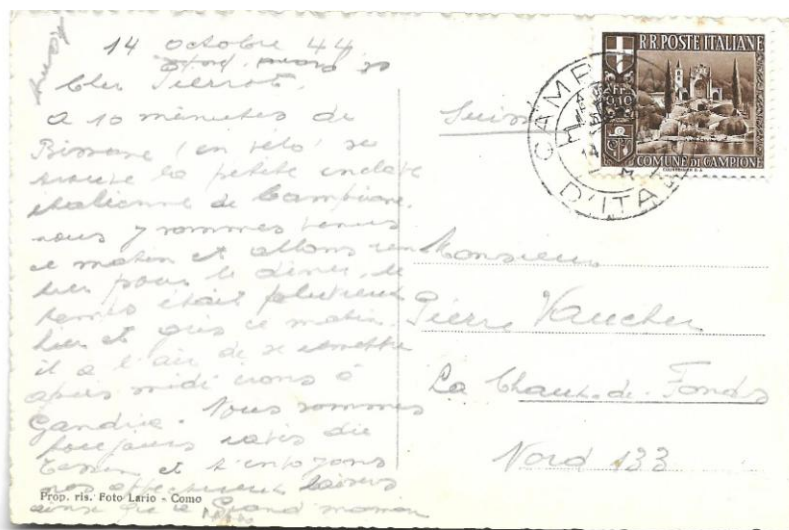 14 octobre 44
Cher Pierrot,
A 10 minutes de
Bissone (en vélo) se
trouve la petite enclave
italienne de Campione.
nous y sommes venus
ce matin et allons ren
trer pour le dîner, le
temps était pluvieux
hier et gris ce matin.
il a l'air de se remettre
après midi irons à
Gandria. Nous sommes
toujours ravis du
Tessin et t'envoyons
nos affectueux baisers
ainsi que Grand maman
Prop. ris. Foto Lario - Como
Suisse
R.R. POSTE ITALIANE
0,10
COMUNE DI CAMPIONE
CAMPIONE
D'ITALIA
Monsieur
Pierre Vaucher
La Chaux-de-Fonds
Nord 133